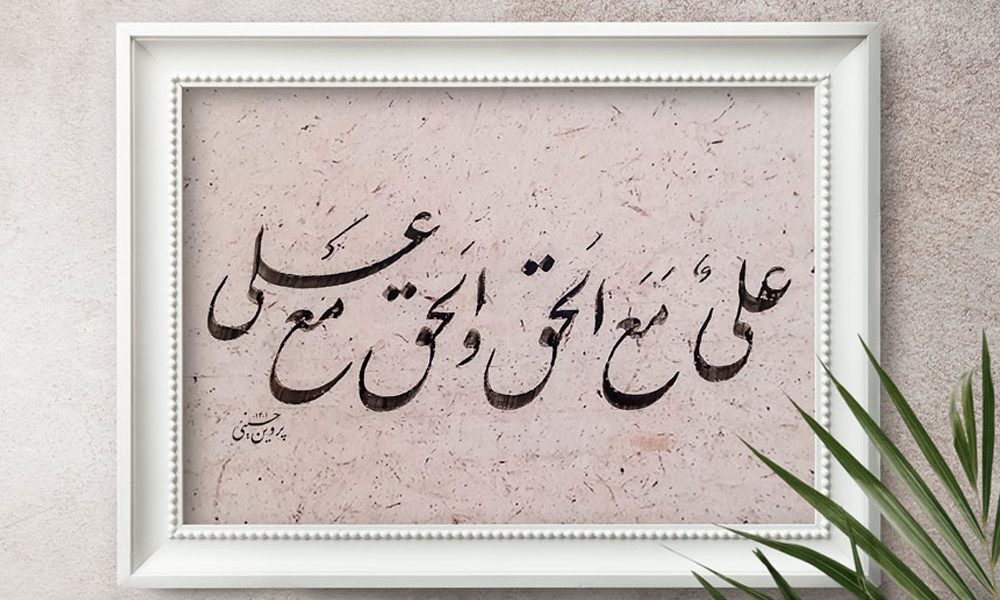 علیُّ مَعَ الحَق وَالحَق مَعَ عَلی
پروین حسینی
۱۴۰۱